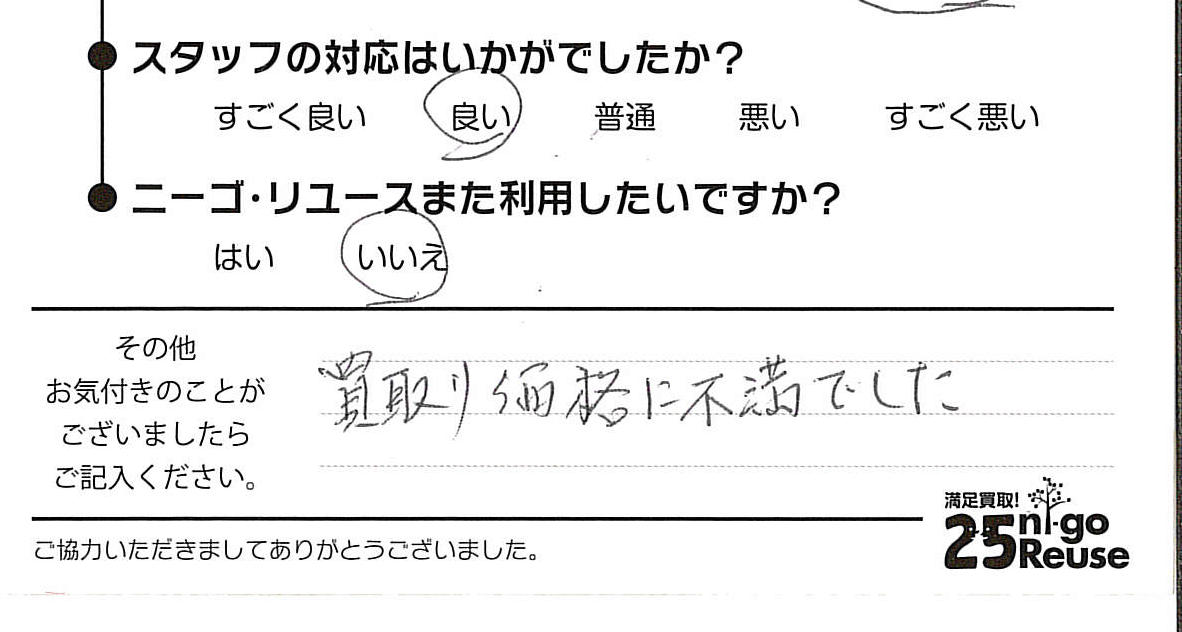 スタッフの対応はいかがでしたか？
すごく良い 良い 普通 悪い すごく悪い
ニーゴ・リユースまた利用したいですか？
はい いいえ
その他
お気付きのことが
ございましたら
ご記入ください。
買取り価格に不満でした
満足買取！
25 ni-go
Reuse
ご協力いただきましてありがとうございました。